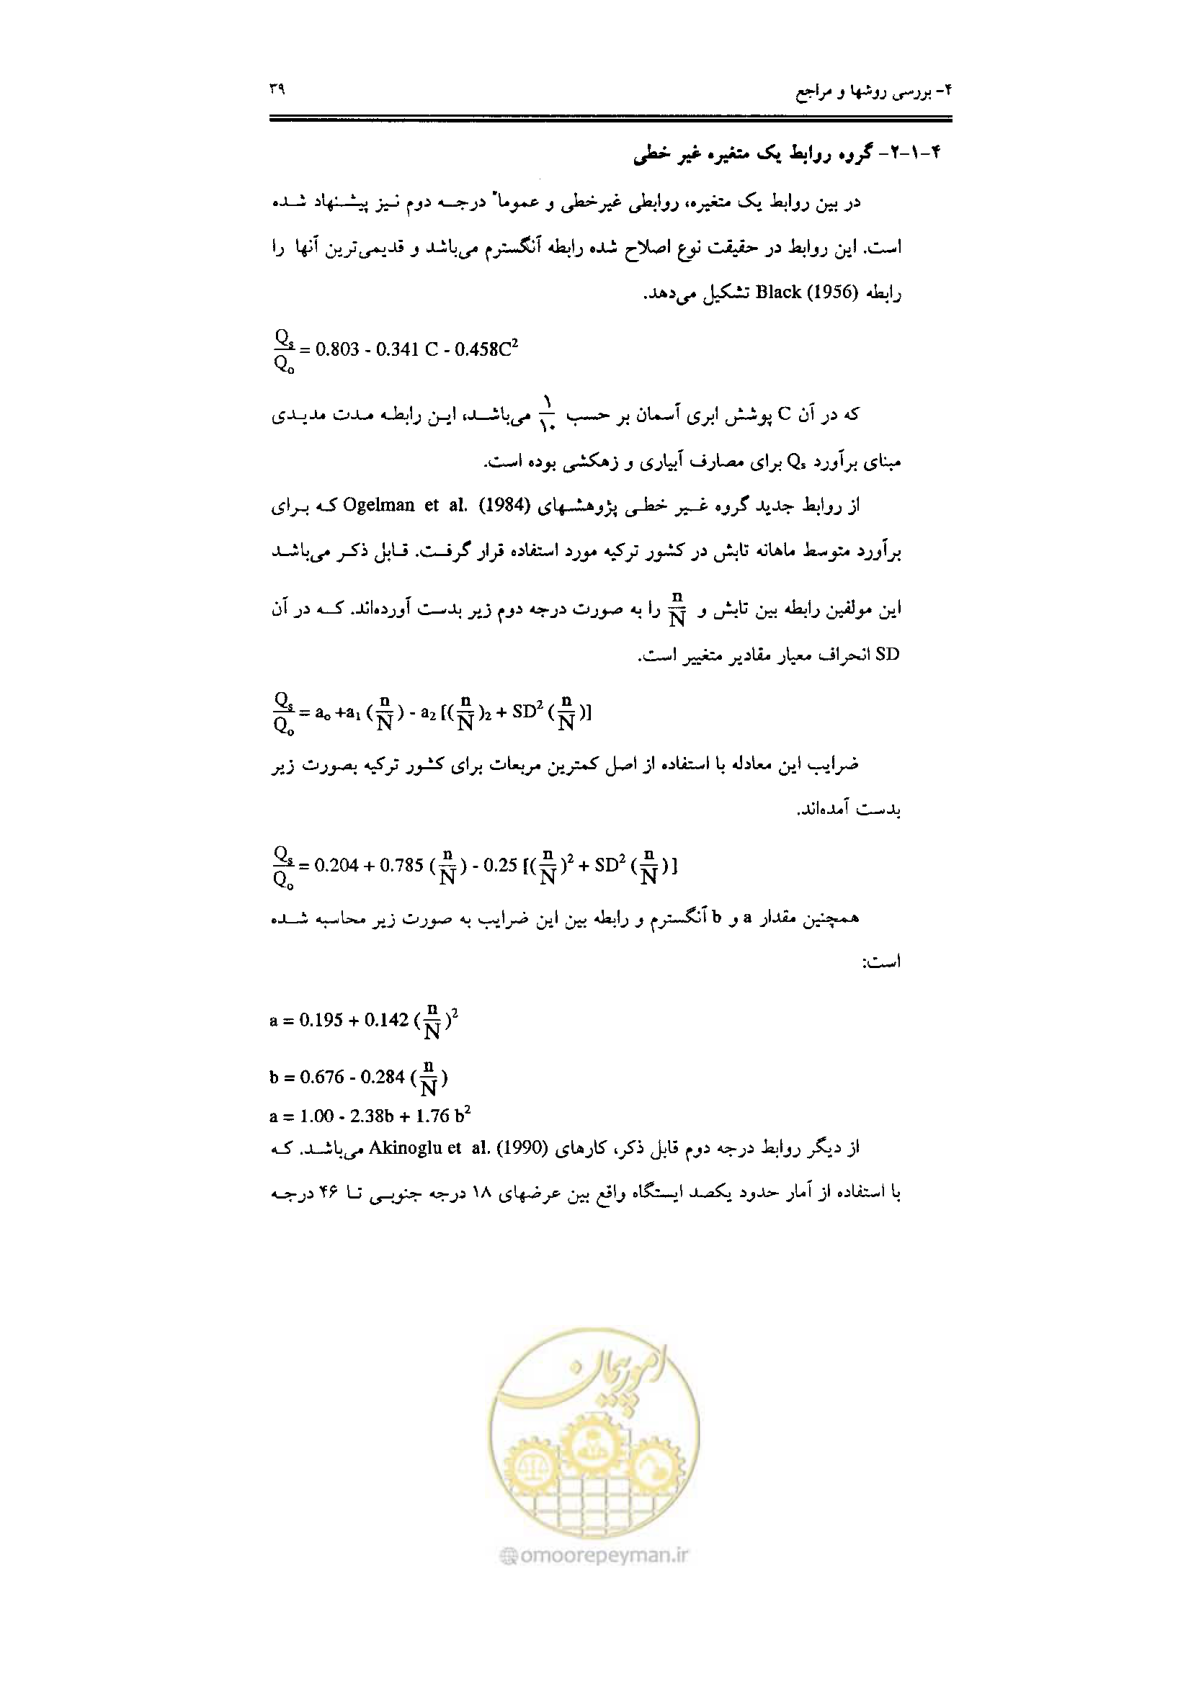 ۴- بررسی روشها و مراجع ۳۹
۴-۱-۲- گروه روابط یک متغیره غیر خطی
در بین روابط یک متغیره، روابطی غیرخطی و عموماً درجه دوم نیز پیشنهاد شده
است. این روابط در حقیقت نوع اصلاح شده رابطه آنگسترم می‌باشد و قدیمی‌ترین آنها را
رابطه Black (1956) تشکیل می‌دهد.
Qs/Qo = 0.803 - 0.341 C - 0.458C²
که در آن C پوشش ابری آسمان بر حسب ۱/۱۰ می‌باشد، این رابطه مدت مدیدی
مبنای برآورد Qs برای مصارف آبیاری و زهکشی بوده است.
از روابط جدید گروه غیر خطی پژوهشهای Ogelman et al. (1984) که برای
برآورد متوسط ماهانه تابش در کشور ترکیه مورد استفاده قرار گرفت. قابل ذکر می‌باشد
این مولفین رابطه بین تابش و n/N را به صورت درجه دوم زیر بدست آورده‌اند. که در آن
SD انحراف معیار مقادیر متغییر است.
Qs/Qo = ao +a1 (n/N) - a2 [(n/N)2 + SD² (n/N)]
ضرایب این معادله با استفاده از اصل کمترین مربعات برای کشور ترکیه بصورت زیر
بدست آمده‌اند.
Qs/Qo = 0.204 + 0.785 (n/N) - 0.25 [(n/N)² + SD² (n/N)]
همچنین مقدار a و b آنگسترم و رابطه بین این ضرایب به صورت زیر محاسبه شده
است:
a = 0.195 + 0.142 (n/N)²
b = 0.676 - 0.284 (n/N)
a = 1.00 - 2.38b + 1.76 b²
از دیگر روابط درجه دوم قابل ذکر، کارهای Akinoglu et al. (1990) می‌باشد. که
با استفاده از آمار حدود یکصد ایستگاه واقع بین عرضهای ۱۸ درجه جنوبی تا ۴۶ درجه
امور پیمان
omoorepeyman.ir